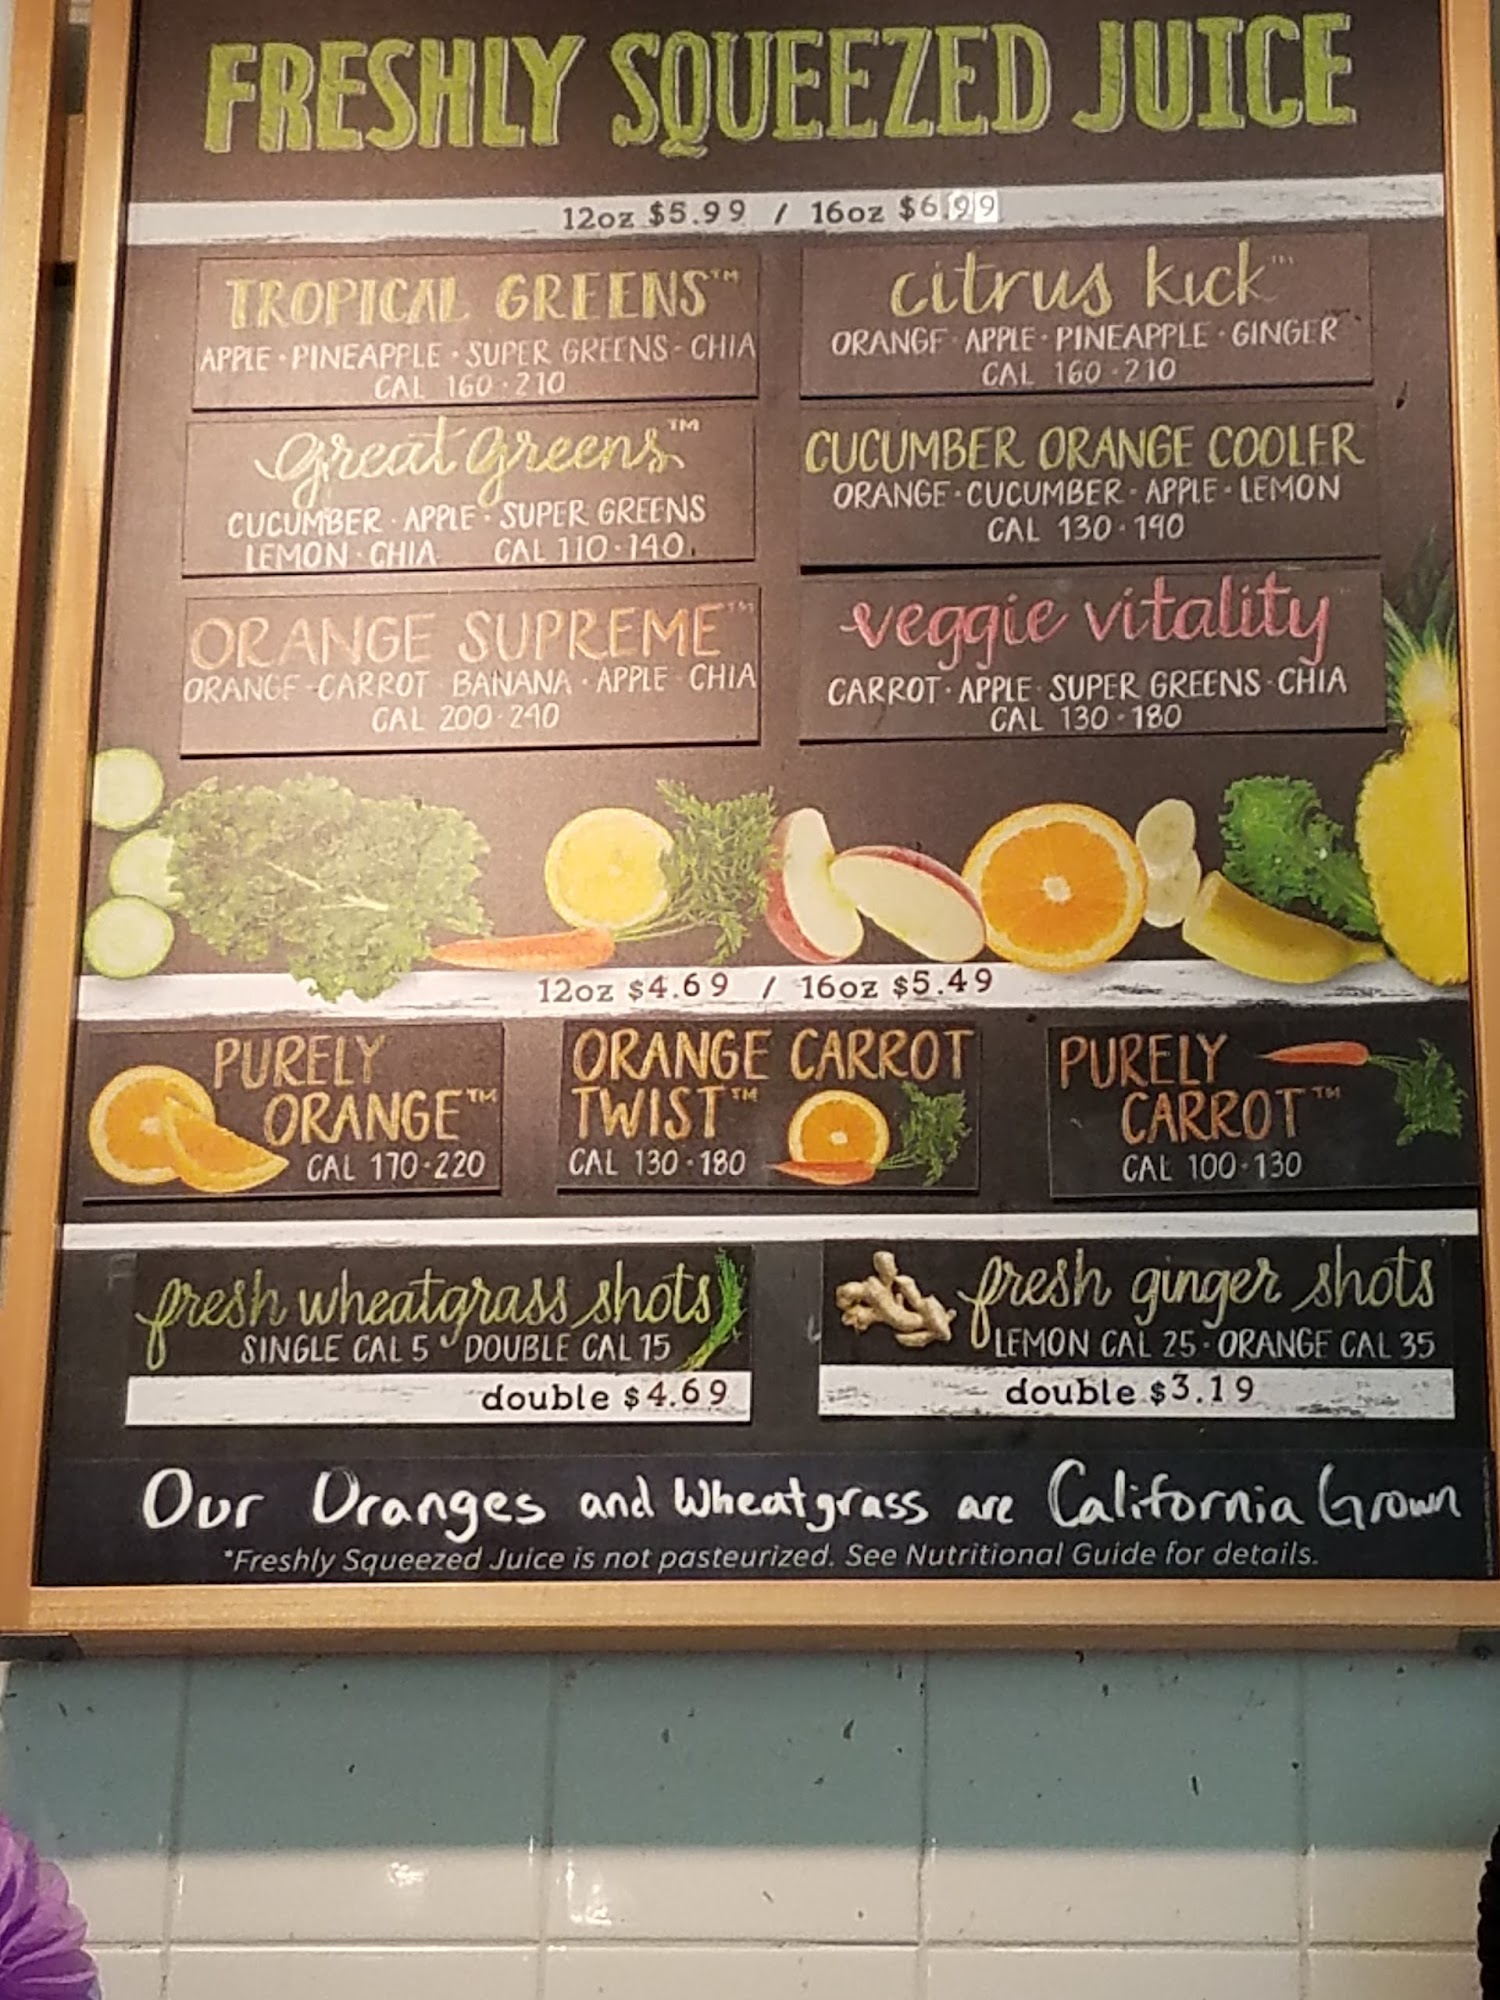 FRESHLY SQUEEZED JUICE
12oz $5.99 / 16oz $6.99
TROPICAL GREENS™
APPLE · PINEAPPLE · SUPER GREENS · CHIA
CAL 160 · 210
citrus kick™
ORANGE · APPLE · PINEAPPLE · GINGER
CAL 160 · 210
great greens™
CUCUMBER · APPLE · SUPER GREENS
LEMON · CHIA CAL 110 · 140
CUCUMBER ORANGE COOLER
ORANGE · CUCUMBER · APPLE · LEMON
CAL 130 · 190
ORANGE SUPREME™
ORANGE · CARROT · BANANA · APPLE · CHIA
CAL 200 · 240
veggie vitality™
CARROT · APPLE · SUPER GREENS · CHIA
CAL 130 · 180
12oz $4.69 / 16oz $5.49
PURELY
ORANGE™
CAL 170 · 220
ORANGE CARROT
TWIST™
CAL 130 · 180
PURELY
CARROT™
CAL 100 · 130
fresh wheatgrass shots
SINGLE CAL 5 · DOUBLE CAL 15
double $4.69
fresh ginger shots
LEMON CAL 25 · ORANGE CAL 35
double $3.19
Our Oranges and Wheatgrass are California Grown
*Freshly Squeezed Juice is not pasteurized. See Nutritional Guide for details.